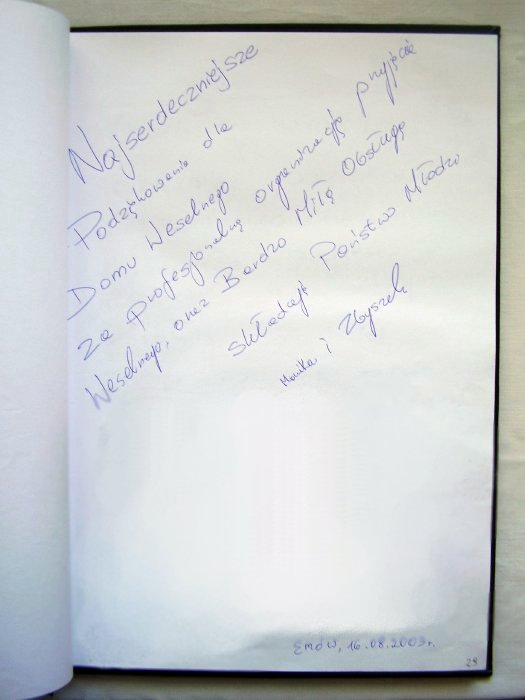 Najserdeczniejsze
Podziękowania dla
Domu Weselnego
za profesjonalną organizację przyjęcia
Weselnego, oraz Bardzo Miłą Obsługę
składają Państwo Młodzi
Monika i Zbyszek
Emów, 16.08.2003r.
29